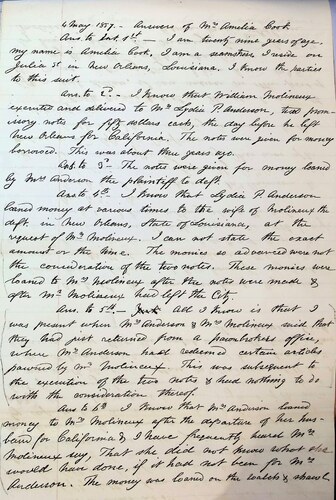 4 May 1857. Answers of Mrs Amelia Cook.
Ans. to Int 1st — I am twenty nine years of age.
my name is Amelia Cook, I am a seamstress I reside on
Julia St in New Orleans, Louisiana. I know the parties
to this suit.
Ans. to 2d. — I know that William Molineux
executed and delivered to Mrs Lydia P. Anderson, two promis-
isory notes for fifty dollars each, the day before he left
New Orleans for California. The notes were given for money
borrowed. This was about three years ago.
Ans. to 3d. The notes were given for money loaned
by Mrs Anderson the plaintiff to deft.
Ans to 4th. I know that Lydia P. Anderson
loaned money at various times to the wife of Molineux the
deft, in New Orleans, State of Louisiana, at the
request of Mrs Molineux. I can not state the exact
amount or the time. The monies so advanced were not
the consideration of the two notes. These monies were
loaned to Mrs Molineux after the notes were made &
after Mr Molineux had left the City.
Ans. to 5th — All I know is that I
was present when Mrs Anderson & Mrs Molineux said that
they had just returned from a pawnbrokers office,
where Mrs Anderson had redeemed certain articles
pawned by Mrs Molineux. This was subsequent to
the execution of the two notes & had nothing to do
with the consideration thereof.
Ans to 6th I know that Mrs Anderson loaned
money to Mrs Molineux after the departure of her hus-
band for California & I have frequently heard Mrs
Molineux say, that she did not know what she
would have done, if it had not been for Mrs
Anderson. The money was loaned on the &